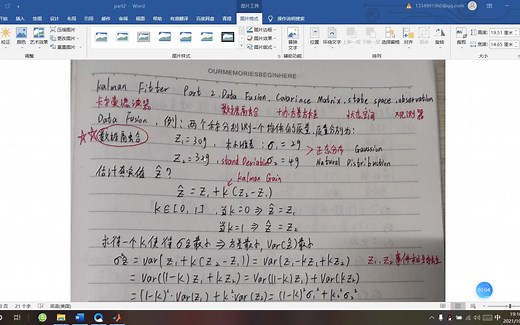 part2 - Word
图片工具
文件 开始 插入 绘图 设计 布局 引用 邮件 审阅 视图 帮助 有道翻译 百度网盘 格式 操作说明搜索
压缩图片
更改图片
重置图片
图片样式
图片边框
图片效果
图片版式
高度: 19.51 厘米
宽度: 14.65 厘米
OURMEMORIESBEGINHERE
Kalman Filter Part 2. Data Fusion, Covarince Matrix, state space, observation
卡尔曼滤波器 数据融合 协方差矩阵 状态空间 观测器
Data Fusion, 例: 两个秤分别测一个物体的质量, 质量分别为:
数据融合 Z₁ = 30g, 标准差: σ₁ = 2g > 正态分布 Gaussian
Z₂ = 32g, stand Deviation σ₂ = 4g Natural Distribution
估计真实值 ẑ?
Kalman Gain
ẑ = Z₁ + k (Z₂ - Z₁)
K∈[0, 1] 当 k=0 ⇒ ẑ = Z₁
当 k=1 ⇒ ẑ = Z₂
求得一个 k, 使得 σẑ 最小 ⇒ 方差最小, Var(ẑ) 最小
σ²ẑ = var (Z₁ + k (Z₂ - Z₁)) = Var (Z₁ - kZ₁ + kZ₂) Z₁, Z₂
= Var ((1-k) Z₁ + kZ₂) = Var ((1-k) Z₁) + Var (kZ₂)
= (1-k)² Var (Z₁) + k² var (Z₂) = (1-k)² σ₁² + k² σ₂²
01:04
21 个字 英语(美国)
中